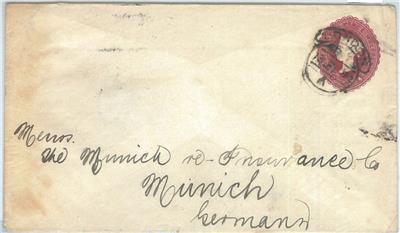 Messrs.
The Munich re-Insurance Co
Munich
Germany